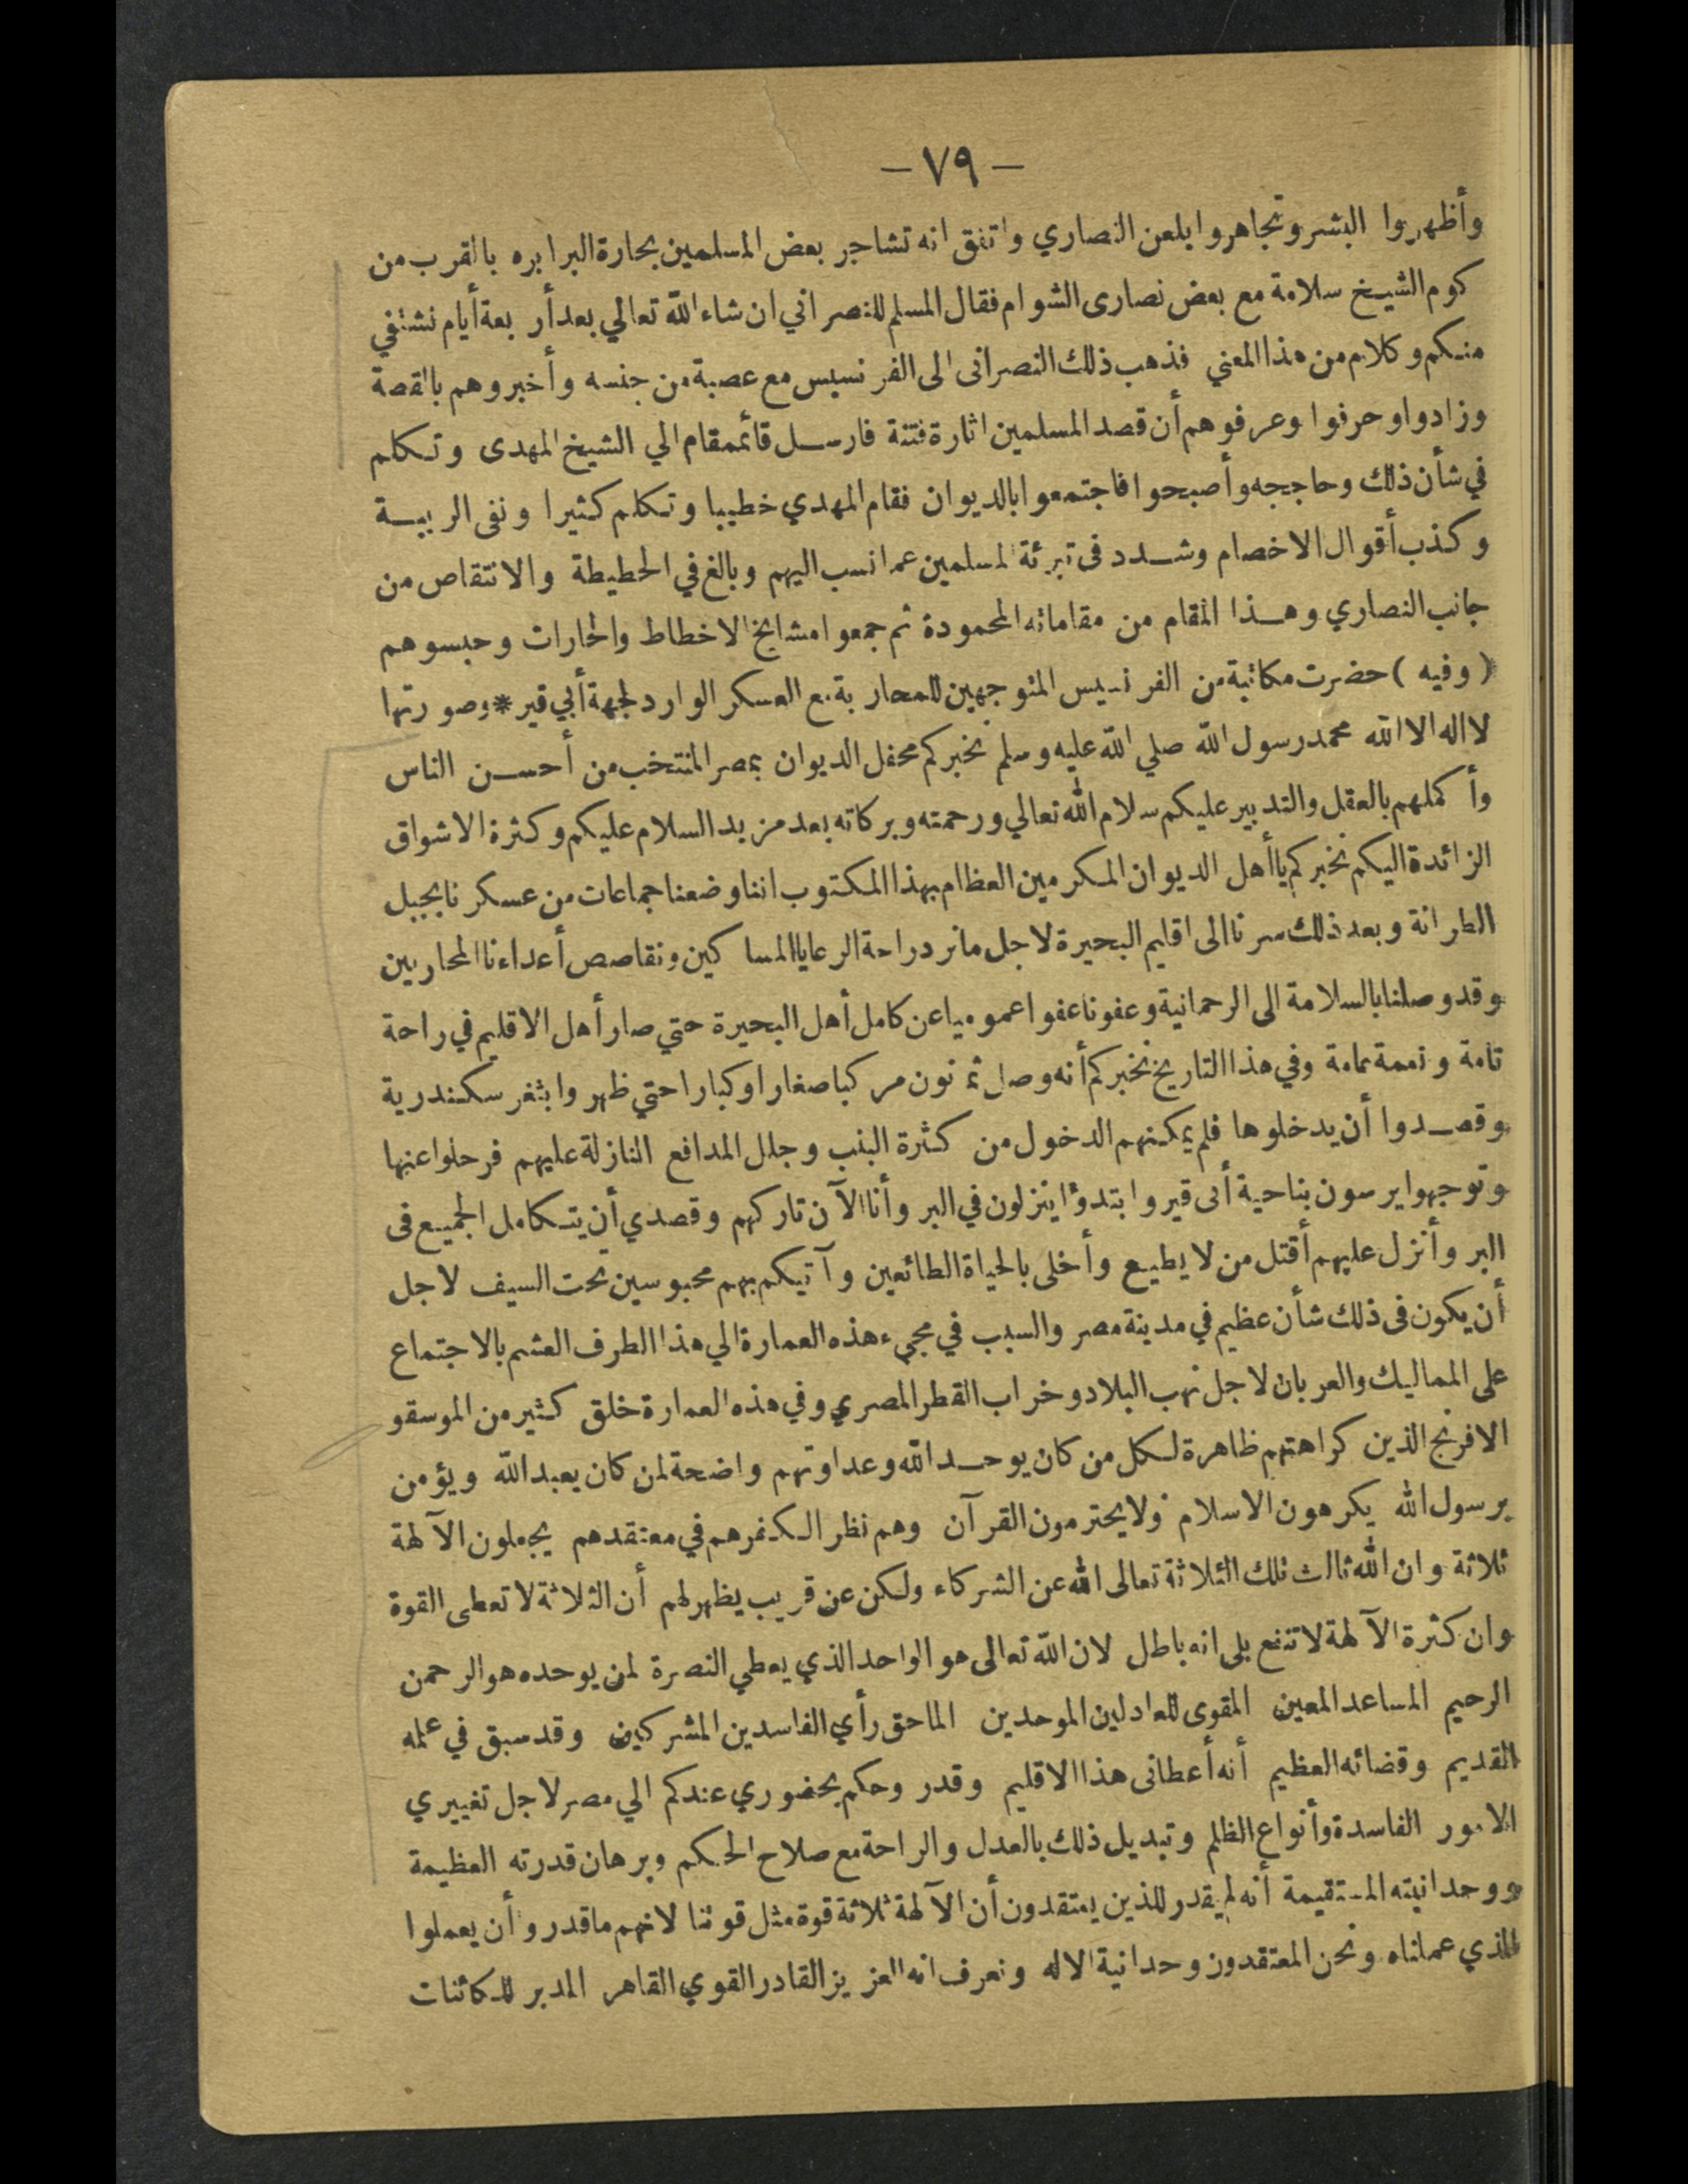 — ٧٩ —
وأظهروا البشر وتجاهروا بلعن النصاري واتفق انه تشاجر بعض المسلمين بحارة البرابره بالقرب من
كوم الشيخ سلامة مع بعض نصارى الشوام فقال المسلم للنصراني ان شاء الله تعالي بعد أربعة أيام نشتفي
منكم وكلام من هذا المعني فذهب ذلك النصرانى الى الفرنسيس مع عصبة من جنسه وأخبروهم بالقصة
وزادوا وحرفوا وعرفوهم أن قصد المسلمين اثارة فتنة فارسل قائممقام الي الشيخ المهدى وتكلم
في شأن ذلك وحاججه وأصبحوا فاجتمعوا بالديوان فقام المهدي خطيبا وتكلم كثيرا ونفى الريبة
وكذب أقوال الاخصام وشدد فى تبرئة المسلمين عما نسب اليهم وبالغ في الحطيطة والانتقاص من
جانب النصاري وهذا المقام من مقاماته المحمودة ثم جمعوا مشايخ الاخطاط والحارات وحبسوهم
( وفيه ) حضرت مكاتبة من الفرنسيس المتوجهين للمحاربة مع العسكر الوارد لجهة أبي قير * وصورتها
لا اله الا الله محمد رسول الله صلي الله عليه وسلم نخبركم محفل الديوان بمصر المنتخب من أحسن الناس
وأكملهم بالعقل والتدبير عليكم سلام الله تعالي ورحمته وبركاته بعد مزيد السلام عليكم وكثرة الاشواق
الزائدة اليكم نخبركم يا أهل الديوان المكرمين العظام بهذا المكتوب اننا وضعنا جماعات من عسكرنا بجبل
الطرانة وبعد ذلك سرنا الى اقليم البحيرة لاجل ما نرد راحة الرعايا المساكين ونقاصص أعداءنا المحاربين
وقد وصلنا بالسلامة الى الرحمانية وعفونا عفوا عموميا عن كامل أهل البحيرة حتي صار أهل الاقليم في راحة
تامة ونعمة عامة وفي هذا التاريخ نخبركم أنه وصل ثمانون مركبا صغارا وكبارا حتي ظهروا بثغر سكندرية
وقصدوا أن يدخلوها فلم يمكنهم الدخول من كثرة البنب وجلل المدافع النازلة عليهم فرحلوا عنها
وتوجهوا يرسون بناحية أبى قير وابتدؤا ينزلون في البر وأنا الآن تاركهم وقصدي أن يتكامل الجميع فى
البر وأنزل عليهم أقتل من لا يطيع وأخلى بالحياة الطائعين وآتيكم بهم محبوسين تحت السيف لاجل
أن يكون فى ذلك شأن عظيم في مدينة مصر والسبب في مجيء هذه العمارة الي هذا الطرف العشم بالاجتماع
على المماليك والعربان لاجل نهب البلاد وخراب القطر المصري وفي هذه العمارة خلق كثير من الموسقو
الافرنج الذين كراهتهم ظاهرة لكل من كان يوحد الله وعداوتهم واضحة لمن كان يعبد الله ويؤمن
برسول الله يكرهون الاسلام ولا يحترمون القرآن وهم نظرا لكفرهم في معتقدهم يجعلون الآلهة
ثلاثة وان الله ثالث تلك الثلاثة تعالى الله عن الشركاء ولكن عن قريب يظهر لهم أن الثلاثة لا تعطى القوة
وان كثرة الآلهة لا تنفع بلى انه باطل لان الله تعالى هو الواحد الذي يعطي النصرة لمن يوحده هو الرحمن
الرحيم المساعد المعين المقوى للعادلين الموحدين الماحق رأي الفاسدين المشركين وقد سبق في علمه
القديم وقضائه العظيم أنه أعطانى هذا الاقليم وقدر وحكم بحضوري عندكم الي مصر لاجل تغييري
الامور الفاسدة وأنواع الظلم وتبديل ذلك بالعدل والراحة مع صلاح الحكم وبرهان قدرته العظيمة
ووحدانيته المستقيمة أنه لم يقدر للذين يعتقدون أن الآلهة ثلاثة قوة مثل قوتنا لانهم ما قدروا أن يعملوا
الذي عملناه ونحن المعتقدون وحدانية الاله ونعرف انه العزيز القادر القوي القاهر المدبر للكائنات